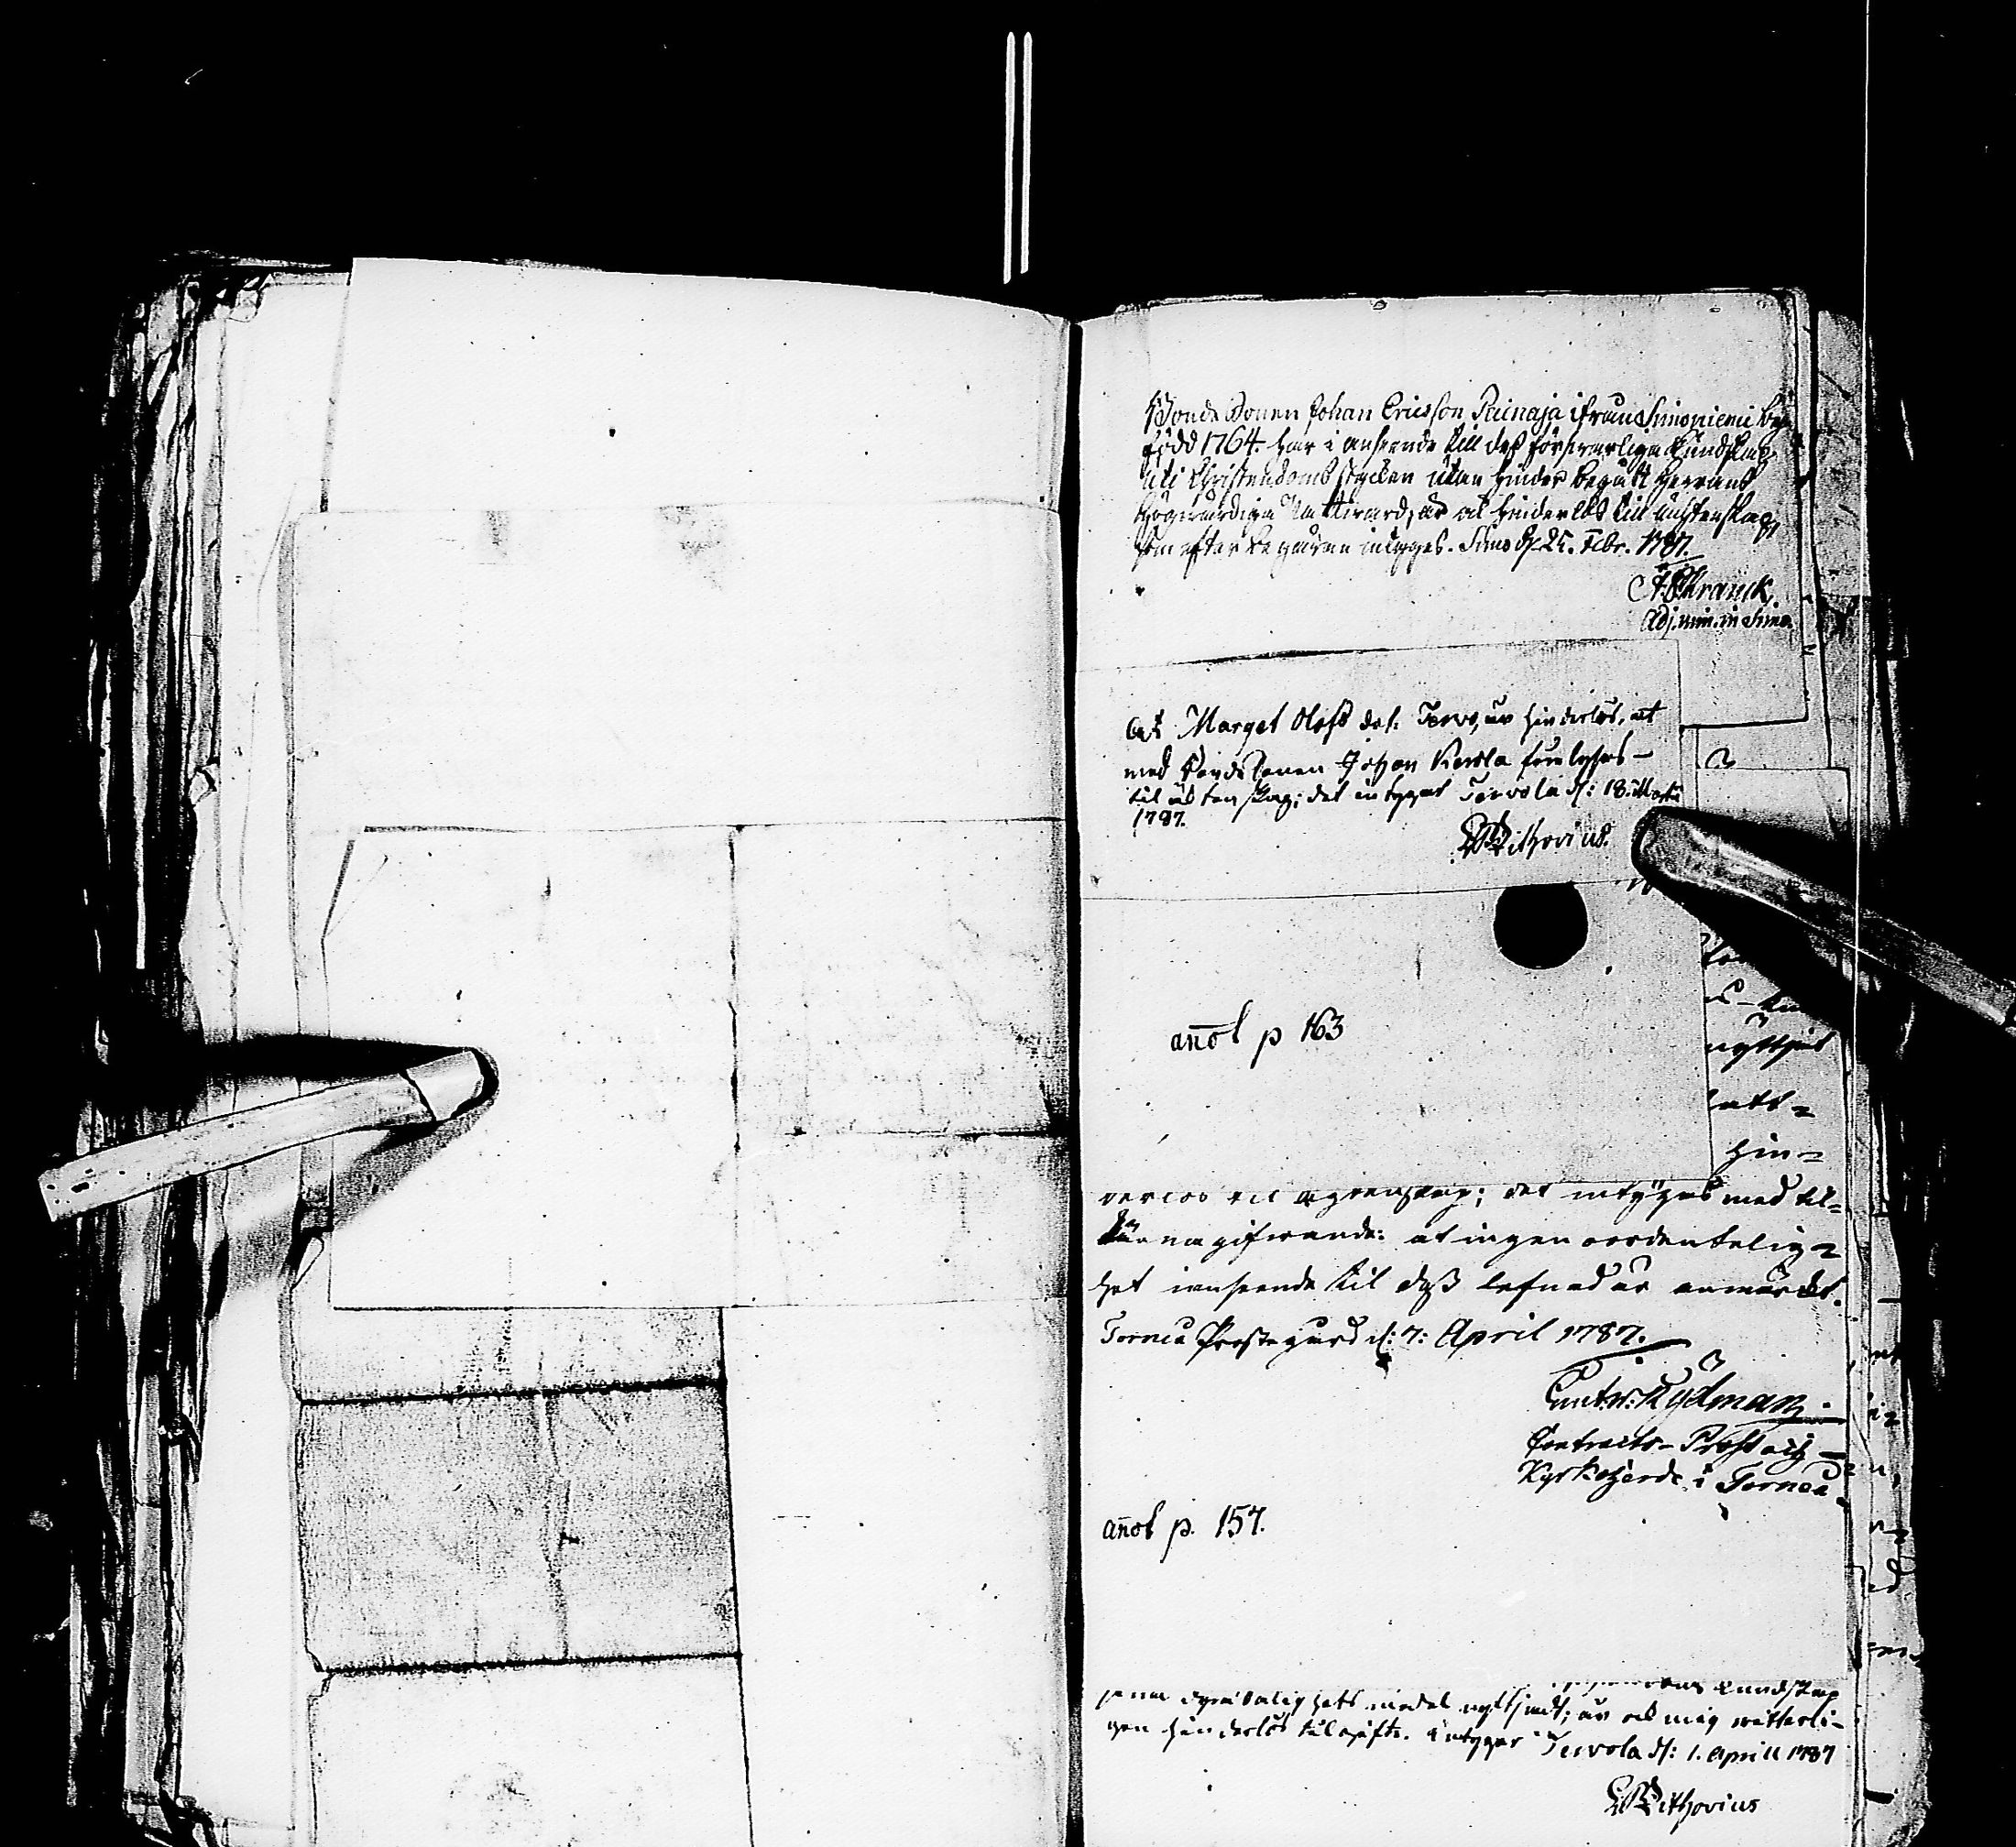 Bonde Sonen Johan Ericsson Peinaja ifrån Simoniemi by
född 1764. har i anseende till deß försvarliga Kundskap
uti Christendoms stycken utan hinder begått Herrans
Högwärdiga Nattward, är ock hinderlös till ächtenskap,
som efter begäran intyges. Simo d. 25. Febr. 1787.
Kranck,
Adj. min. in Simo.
At Marget Olofs dot: Tervo, är hinderlös, at
med bonde Sonen Johan Kerola förelysas
til ächtenskap; det intygat Tervola d: 18. Marti
1787.
Pithovius.
nyttjat
natt-
hin-
derlos til ägtenskap; det intygas med til-
kännagifwande: at ingen oordentelig-
het i anseende til deß lefnad är anmärckt.
Torneå Prostegård d: 7: April 1787.
Rydman
Contracts-Prost och
Kyrkoherde i Torneå
anot p 163
anot p. 157.
Kundskap
salighets medel nyttjadt; är ock mig witterli-
gen hinderlös til gifte. intygar Tervola d: 1. April 1787
Pithovius